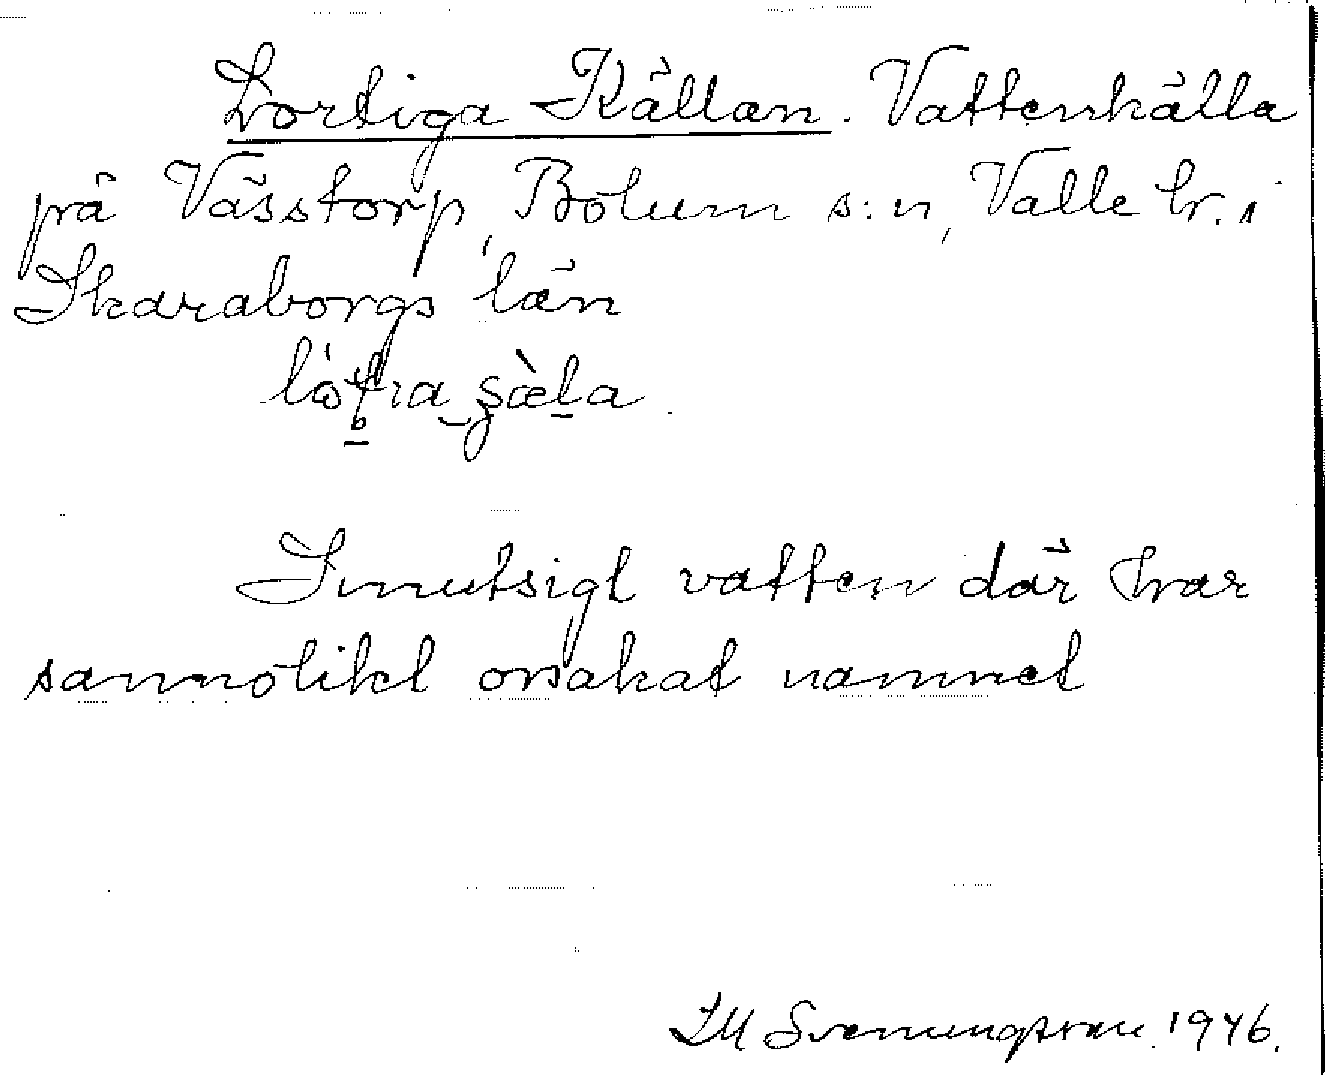 Lortiga Källan. Vattenkälla
på Västorp, Bolum s:n, Valle hr. i
Skaraborgs län
Smutsigt vatten där har
sannolikt orsakat namnet
SM Svenungsson. 1946.